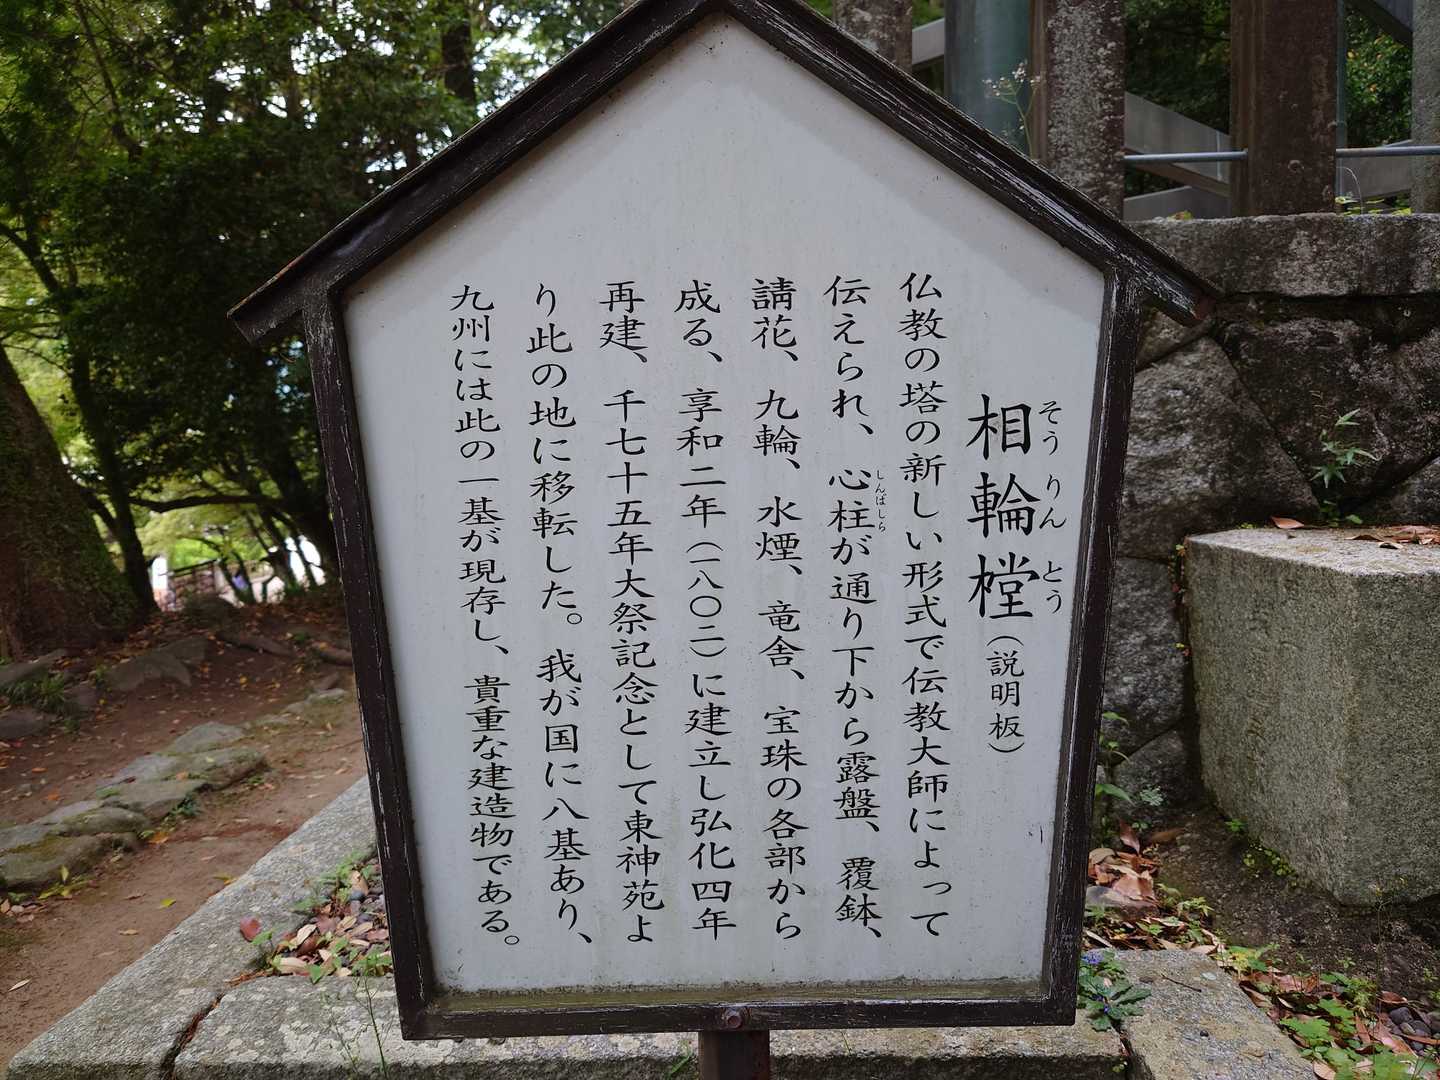 相輪橖(説明板)
そうりんとう
仏教の塔の新しい形式で伝教大師によって
伝えられ、心柱が通り下から露盤、覆鉢、
しんばしら
請花、九輪、水煙、竜舎、宝珠の各部から
成る、享和二年(一八〇二)に建立し弘化四年
再建、千七十五年大祭記念として東神苑よ
り此の地に移転した。我が国に八基あり、
九州には此の一基が現存し、貴重な建造物である。